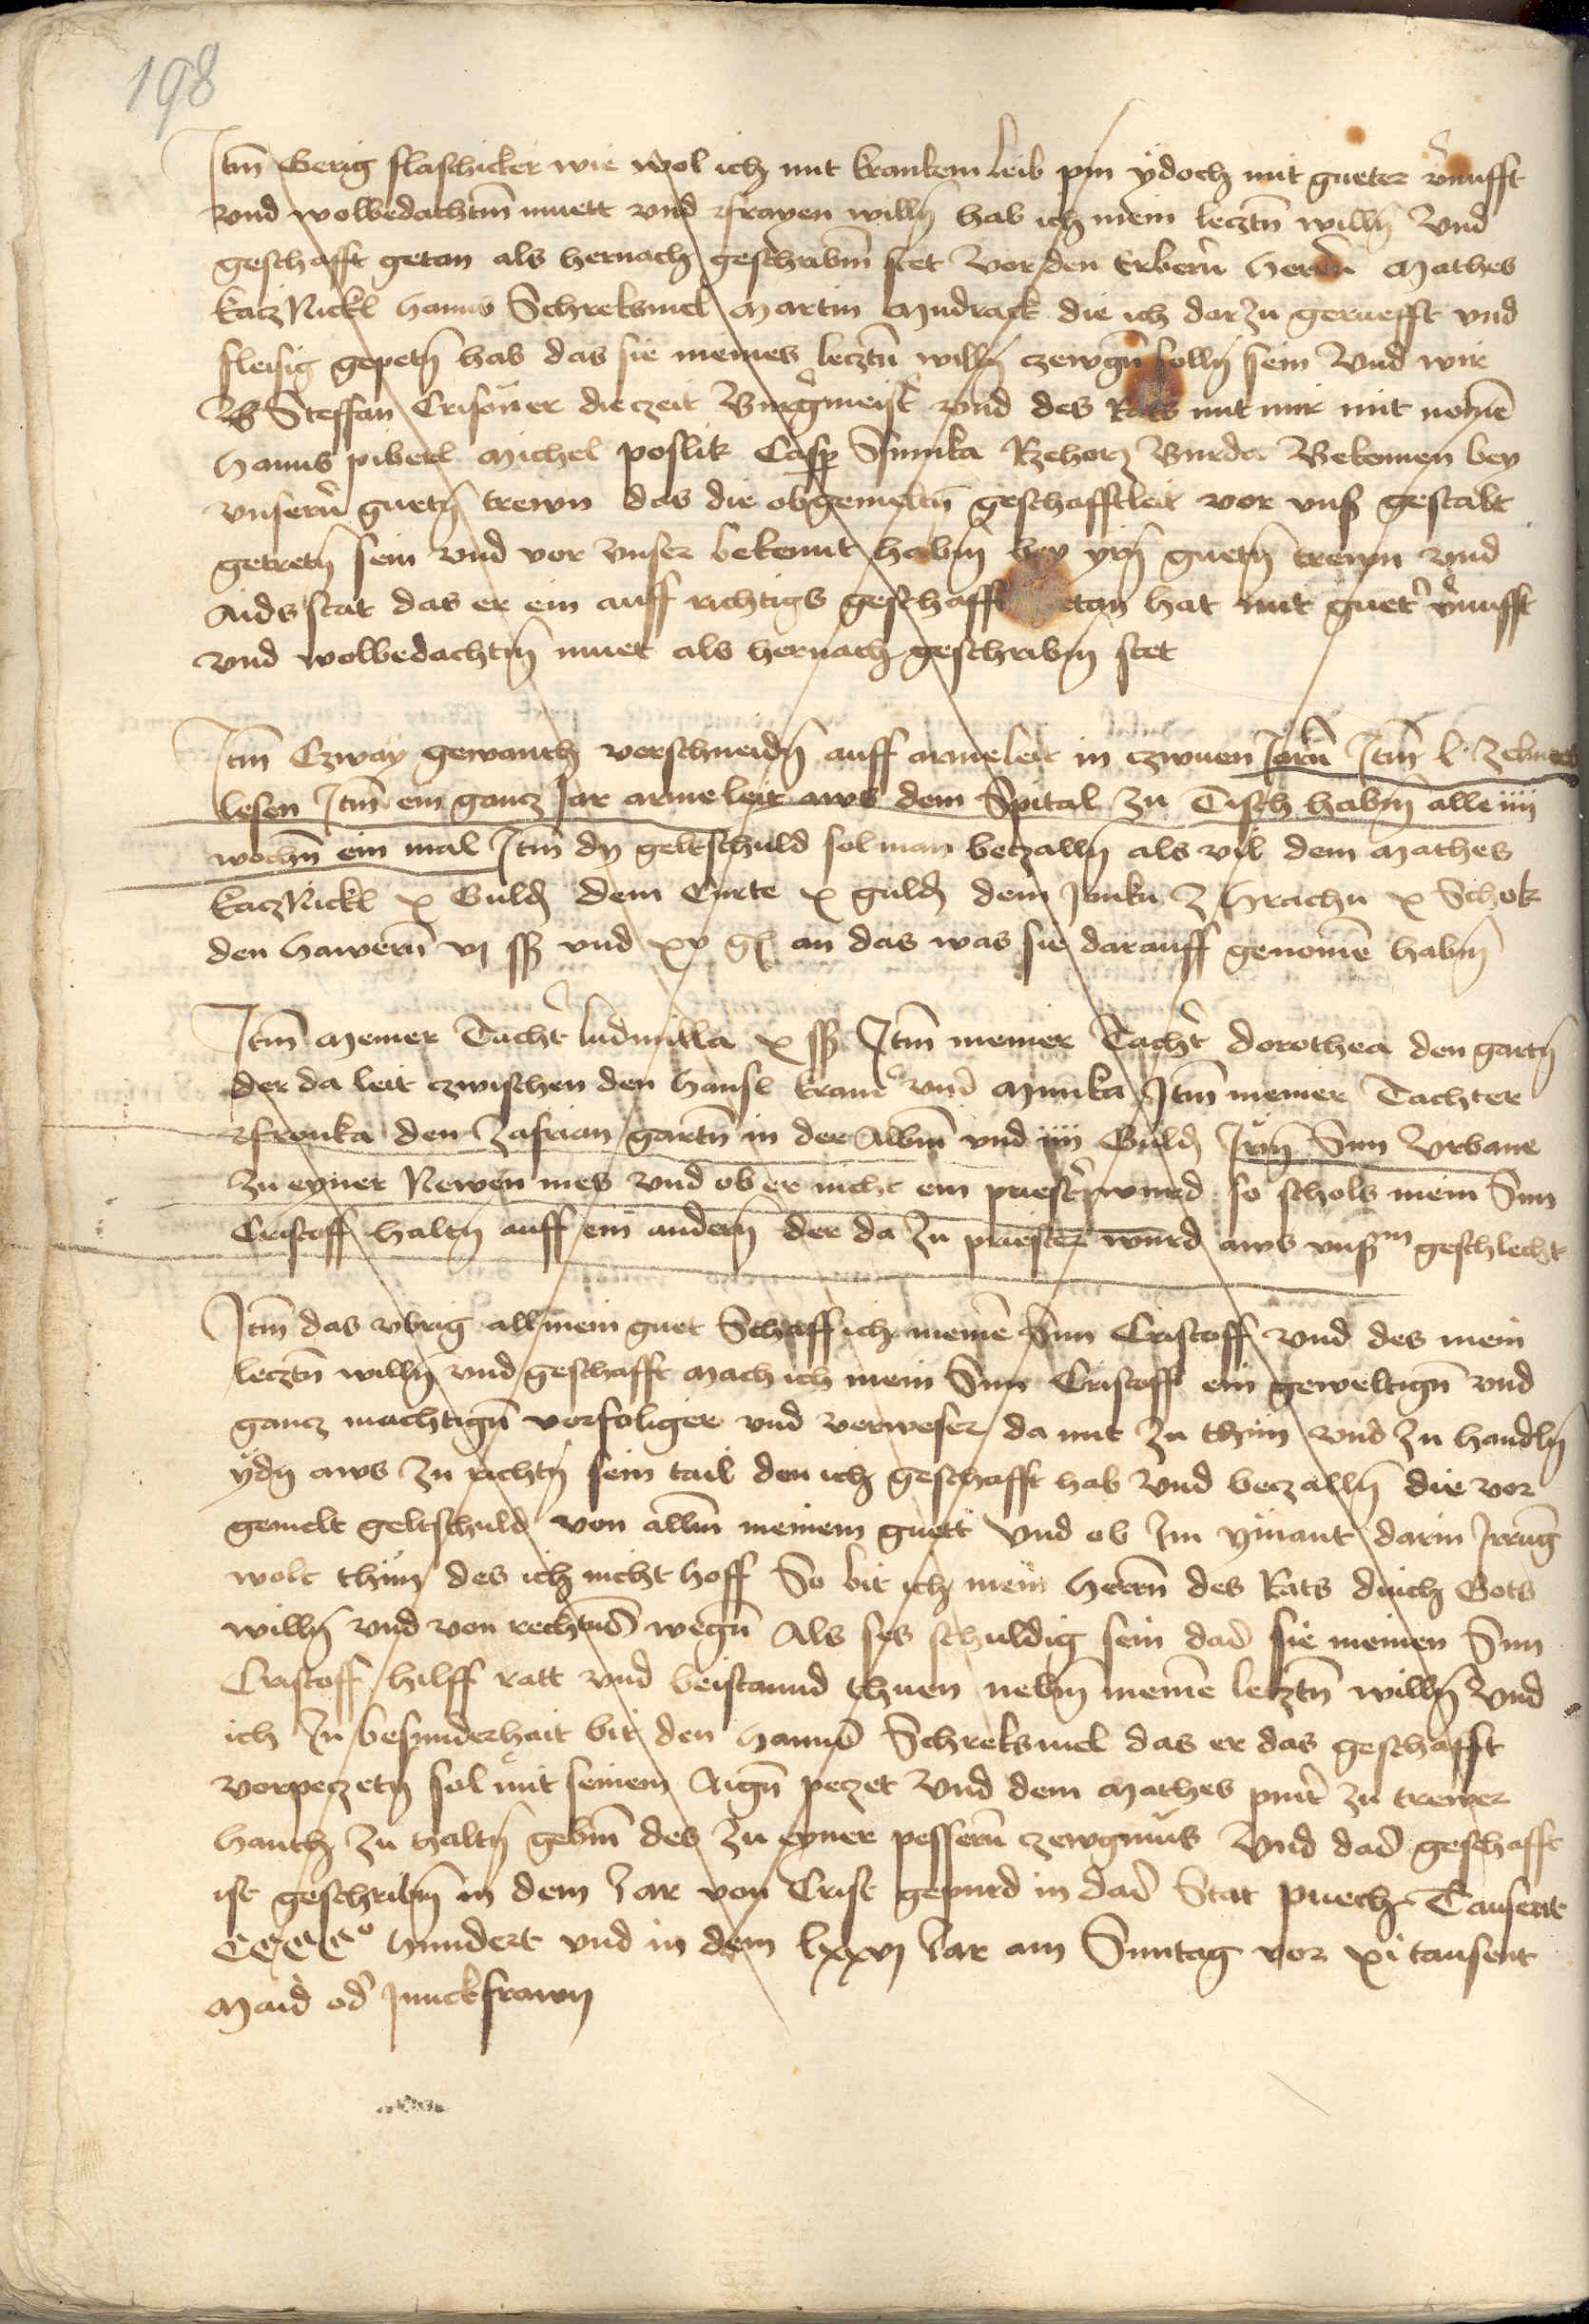 198
Itm̄ Gerig flaschicker wie wol ich mit krankem leib pin ÿdoch mit gueter v̉nufft
vnd wolbedachtm̄ muett vnd frayen willn̄ hab ich mein lecztn̄ willn̄ Vnd
geschafft getan als hernach geschribm̄ stet Vor den Erbern̄ Herrn̄ Mathes
kaczNickl Hanns Schreksmel Martin Mudrack die ich darzu geruefft vnd
fleisig gepetn̄ hab das sie meines lecztn̄ willn̄ czewgn̄ solln̄ sein Vnd wir
Steffan Crisaner die czeit Burg̉meist̉ vnd des Rats mit mir mit nomē
Hanns piberl Michel poslik Casp̱ Simka Rzehorz Burda Bekennen bey
vnsern̄ guetn̄ trewn das die obgemeltn̄ geschafftleit vor vnß gestalt
getretn̄ sein vnd vor vnser bekennt habm̄ bey yrn̄ guetn̄ trewn vnd
Aids stat das er ein auff richtigs geschafft etan hat mit guet̉ v̉nufft
vnd wolbedachtm̄ muet als hernach geschribm̄ stet
Itm̄ Czway gewanth verschneidn̄ auff arme leit in czwuen Jorn̄ Itm̄ l
lesen Itm̄ ein gancz Jar arme leit aws dem Spital zu Tisch habm̄ alle iiij
wochn̄ ein mal Itm̄ dy geltschuld sol man beczalln̄ als vil dem Mathes
kaczNickl x Guld dem Curte x guld dem Janku z Hrachu x Schok
den Hawern̄ vj ß vnd xv gl an das was sie darauff genomē habm̄
Itm̄ Meiner Tacht̉ ludmilla x ß Itm̄ meiner Tacht̉ dorothea den gartn̄
der da leit czwischen den Hansl kram̉ vnd Mimka Itm̄ meiner Tachter
fronka den Zafrian gartn̄ in der Albm̄ vnd iiij Guld Irm̄ Sun Vrbane
zu eyner Newen mes vnd ob er nicht ein priest̉ wurd so schols mein Sun
Cristoff haltn̄ auff ein andern̄ der da zu priester wurd aws vnßm geschlecht
Itm̄ das vbrig all mein guet Schaff ich meinē Sun Cristoff vnd des mein
lecztn̄ willn̄ vnd geschafft mach ich mein Sun Cristoff ein geweltign̄ vnd
gancz machtign̄ vorfoliger vnd verweser da mit zu thun vnd zu handln̄
ÿdn̄ aws zu richtn̄ sein tail den ich geschafft hab vnd beczalln̄ die vor
gemelt geltschuld von allm̄ meinem guett Vnd ob Im ymant darin Irrūg
wolt thun des ich nicht hoff So bit ich mein Herrn̄ des Rats durch Gots
willn̄ vnd von rechtns wegn̄ Als ses schuldig sein das sie meinen Sun
Cristoff hilff ratt vnd beistannd thuen nebm̄ meinē lecztn̄ willn̄ Vnd
ich In besunderhait bit den Hanns Schreksmel das er das geschafft
vorpeczetn̄ sol mit seinem Aign̄ peczet Vnd dem Mathes pint̉ zu trewer
Hanth zu haltn̄ gebm̄ des zu eyner pessern̄ czewgnuss Vnd das geschafft
ist geschribm̄ in dem Iar von Crist gepurd in das Stat puech Tausent
CCCCo Hundert vnd in dem lxxvj Iar am Suntag vor xi tausent
Maid od̉ Junckfrawn